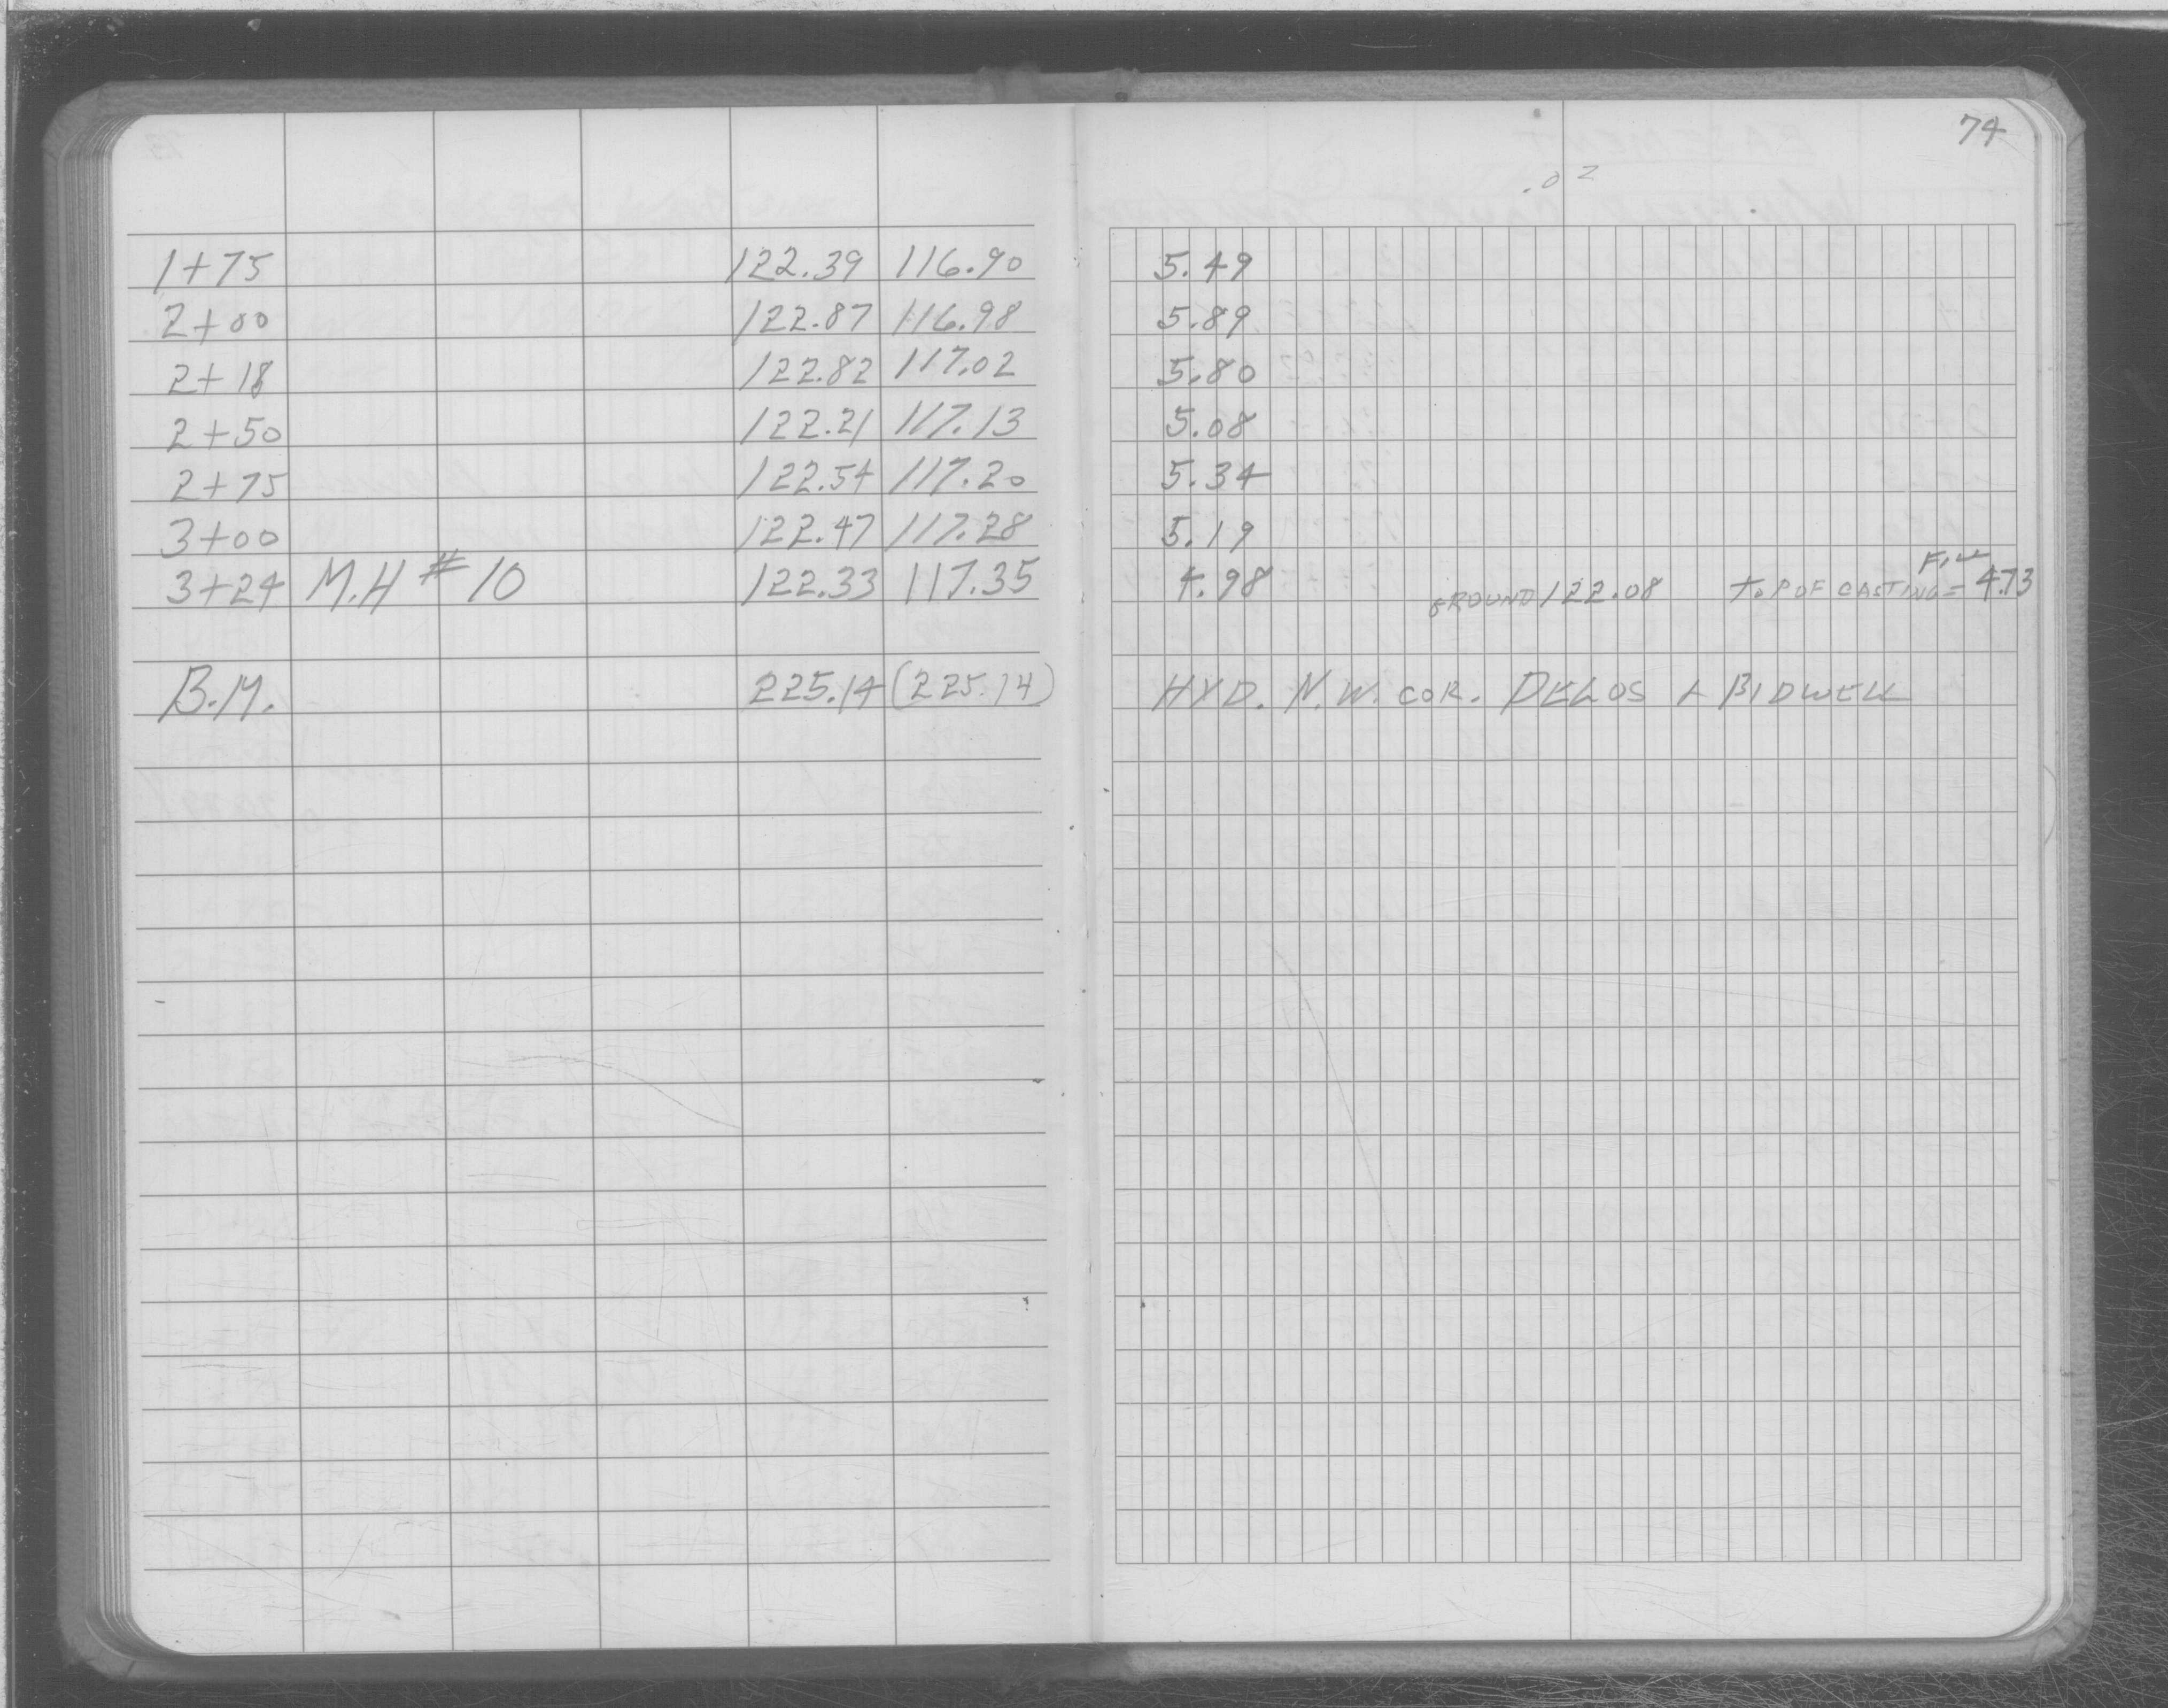 74
.02
1+75 122.39 116.90 5.49
2+00 122.87 116.98 5.89
2+18 122.82 117.02 5.80
2+50 122.21 117.13 5.08
2+75 122.54 117.20 5.34
3+00 122.47 117.28 5.19
3+24 M.H # 10 122.33 117.35 4.98 GROUND 122.08 TOP OF CASTING = 4.73
B.M. 225.14 (225.14) HYD. N.W. COR. DELOS & BIDWELL